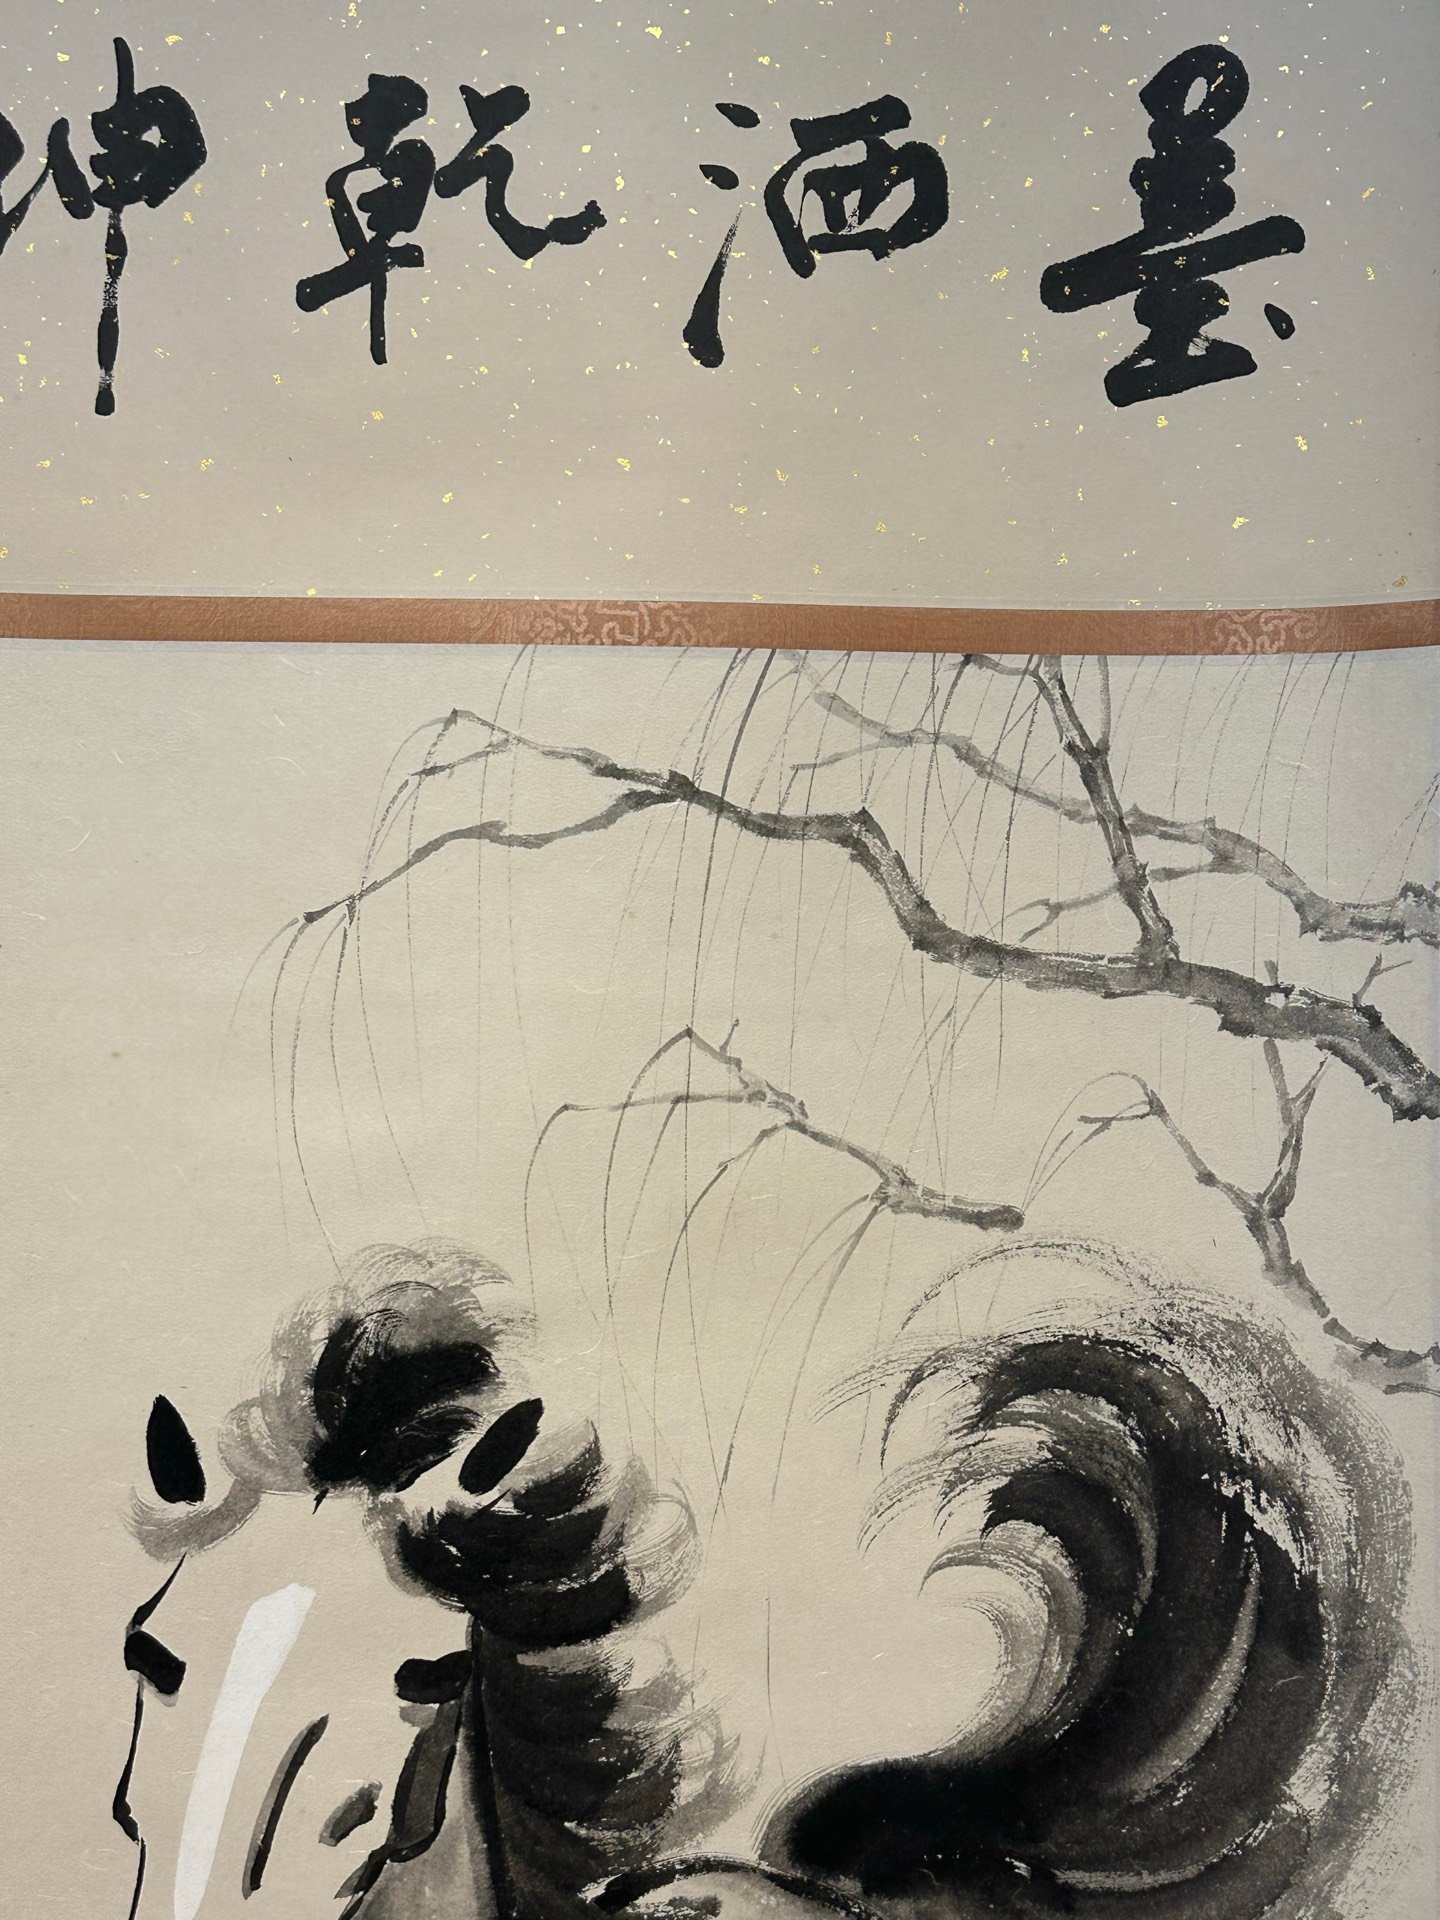 墨洒乾坤